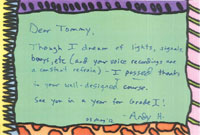 Dear Tommy,
Though I dream of lights, signals,
beeps, etc (and your voice recordings are
a constant refrain) - I passed thanks
to your well-designed course.
See you in a year for Grade I!
- Andy H.